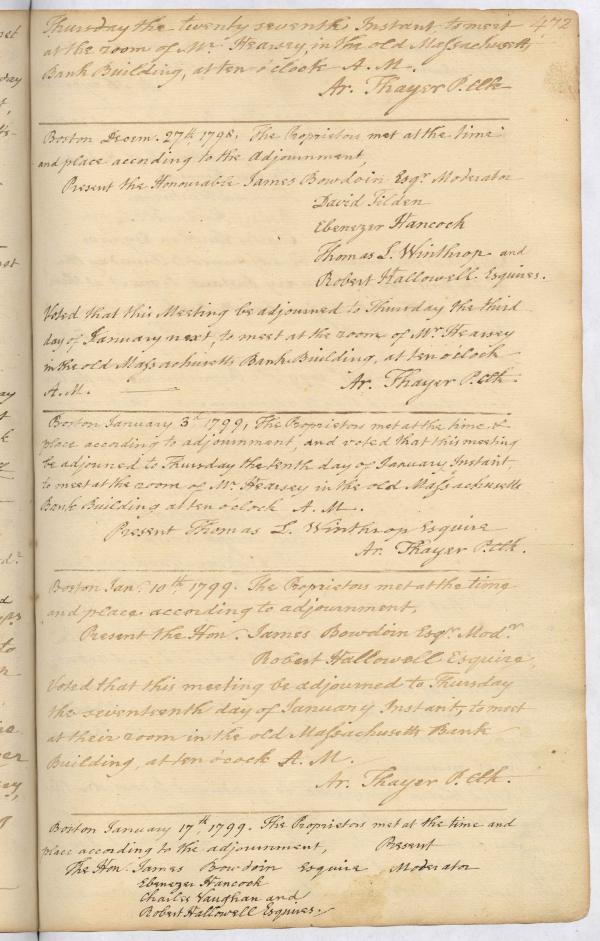 472
Thursday the twenty seventh Instant to meet
at the room of Mr. Hearsey, in the old Massachusetts
Bank Building, at ten o'clock A. M.
Ar. Thayer P. Clk
Boston Decem. 27th. 1798. The Proprietors met at the time
and place according to the Adjournment,
Present the Honourable James Bowdoin Esqr. Moderator
David Tilden
Ebenezer Hancock
Thomas L. Winthrop and
Robert Hallowell Esquires.
Voted that this Meeting be adjourned to Thursday the third
day of January next, to meet at the room of Mr. Hearsey
in the old Massachusetts Bank Building, at ten o'clock
A. M. Ar. Thayer P. Clk.
Boston January 3d. 1799, The Proprietors met at the time &
place according to adjournment, and voted that this meeting
be adjouned to Thursday the tenth day of January Instant,
to meet at the room of Mr. Hearsey in the old Massachusetts
Bank Building at ten o'clock A. M.
Present Thomas L. Winthrop Esquire
Ar. Thayer P. Clk.
Boston Jan. 10th, 1799. The Proprietors met at the time
and place according to adjournment,
Present the Hon. James Bowdoin Esqr. Modr.
Robert Hallowell Esquire,
Voted that this meeting be adjourned to Thursday
the seventeenth day of January Instant, to meet
at their room in the old Massachusetts Bank
Building, at ten o'cock A. M.
Ar. Thayer P. Clk.
Boston January 17th, 1799. The Proprietors met at the time and
place according to the adjournment, Present
The Hon. James Bowdoin Esquire Moderator
Ebenezer Hancock
Charles Vaughan and
Robert Hallowell Esquires.